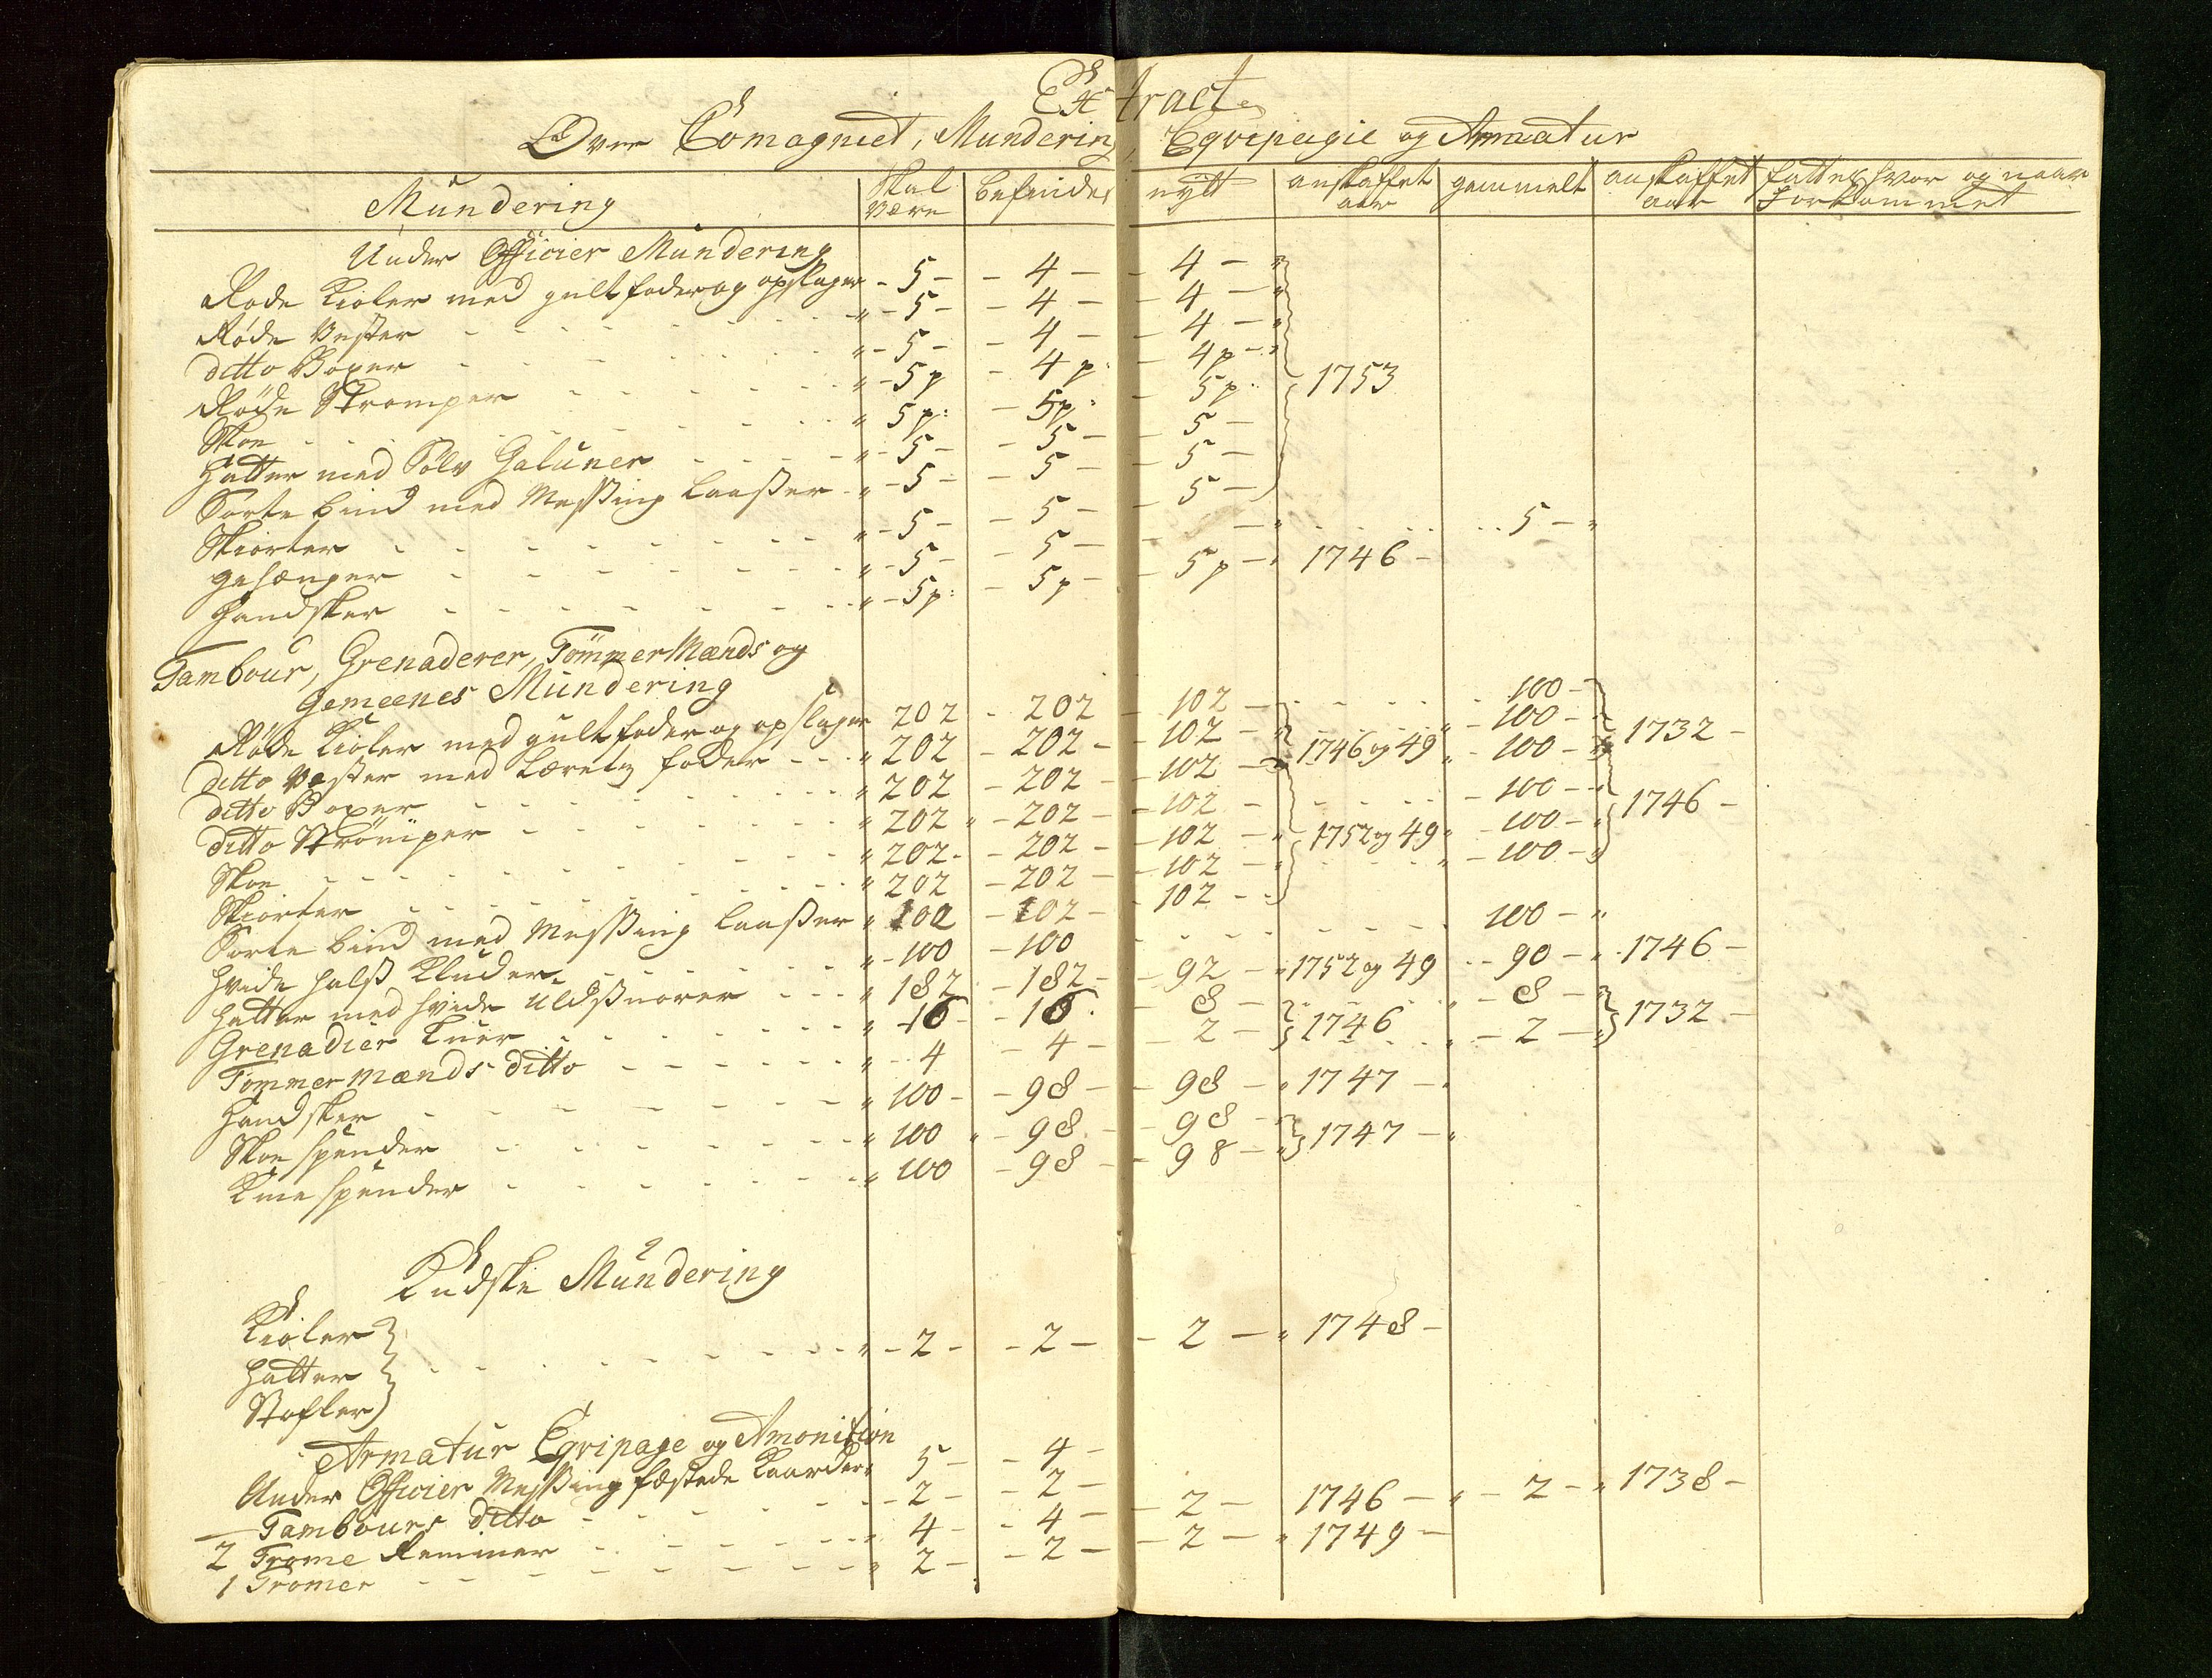 Extract
Over Comagniet, Mundering, Eqvipagie og Armatur
Mundering | Skal være | befindes | nÿtt | anskaffet aar | gammelt | anskaffet aar | fattes hvor og naar forkommet
Under Officier Mundering
Røde Kioler med gult foder og opslager - 5 - - 4 - - 4 - "
Røde Vester - - - " - 5 - - 4 - - 4 - "
ditto Boxer - - - " - 5 - - 4 - - 4 - "
Røde Strømper - - - " - 5 p - 4 p: - 4 p - " } 1753
Skoe - - - " 5 p: - 5 p: - 5 p:
Hatter med Sølv Galuner - - - " - 5 - - 5 - - 5 -
Sorte bind med Messing Laaßer - " - 5 - - 5 - - 5 -
Skiorter - - - " - 5 - - 5 - - 5 -
gehænger - - - " - 5 - - 5 - - " - - - 5 - "
Handsker - - - " - 5 p: - 5 p - - 5 p - " 1746 -
Tambour, Grenaderer, TømmerMænds og
Gemeenes Mundering
Røde Kioler med gult foder og opslager 202 - 202 - 102 - - - - 100 -
ditto Vester med Lærretz foder - - - " 202 - 202 - - 102 - " - 100 - "
ditto Boxer - - - " 202 - 202 - - 102 - " 1746 og 49 " - 100 - " 1732 -
ditto Strømper - - - " 202 " - 202 - - 102 - - - - 100 - "
Skoe - - - " 202 - - 202 - - 102 - " 1752 og 49 " - 100 - " 1746 -
Skiorter - - - " 202 - 202 - - 102 - " - - " - 100 - "
Sorte bind med Messing Laaßer " 102 - 102 - - 102 - -
Hvide halß Kluder - - - " - 100 - 100 - - - 100 - "
Hatter med hvide Uldßnorer - - - " 182 - 182 - - 92 - " 1752 og 49 - - 90 - " 1746 -
Grenadier Luer - - - " - 16 - - 16 . - 8 - - - " - 8 -
Tømmermænds ditto - - - " - 4 - 4 - - 2 - } 1746 " - 2 - " } 1732 -
Handsker - - - " 100 - - 98 - - 98 - " 1747 - "
Skoe spender - - - " 100 " - 98 - - 98 -
Knie spender - - - " 100 - 98 - - 98 - " } 1747 - "
Kudske Mundering
Kioler
Hatter } - - - " - 2 - - 2 - - 2 - " 1748 -
Støfler
Armatur Eqvipage og Amonition
Under Officier Messing fæstede Kaarder " 5 - - 4 -
Tambours ditto - - - - 2 - - 2 - - 2 - 1746 - " - 2 - " 1738 -
2 Trome Remmer - - - " 4 - - 4 - - 2 - " 1749 -
1 Tromer - - - " 2 - - 2 -